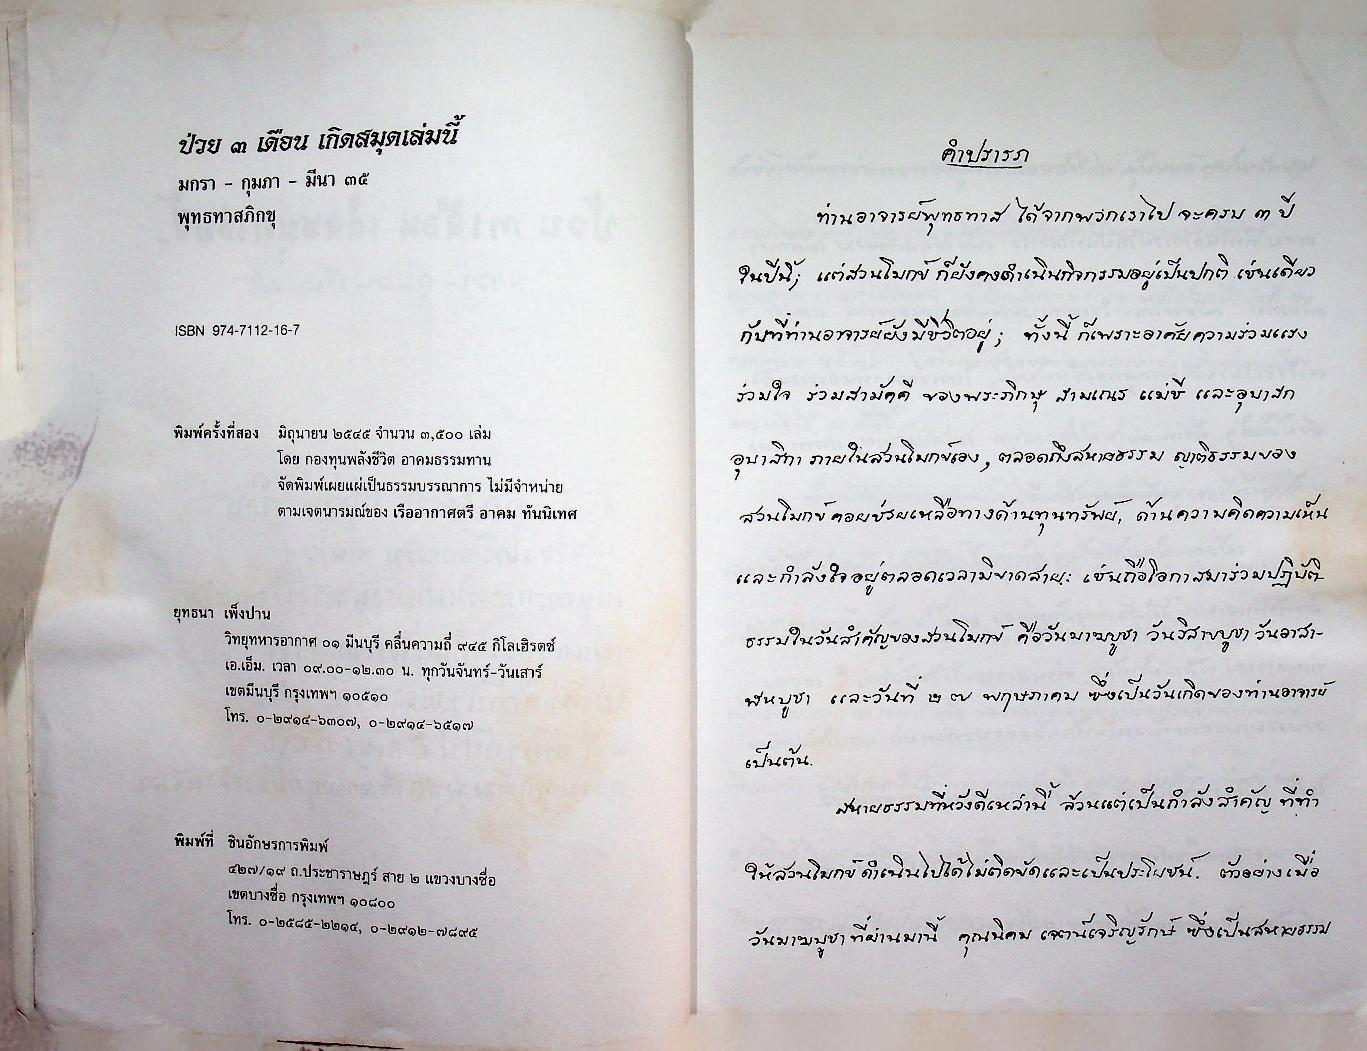 ป่วย ๓ เดือน เกิดสมุดเล่มนี้
มกรา - กุมภา - มีนา ๓๕
พุทธทาสภิกขุ
ISBN 974-7112-16-7
พิมพ์ครั้งที่สอง มิถุนายน ๒๕๔๕ จำนวน ๓,๕๐๐ เล่ม
โดย กองทุนพลังชีวิต อาคมธรรมทาน
จัดพิมพ์เผยแผ่เป็นธรรมบรรณาการ ไม่มีจำหน่าย
ตามเจตนารมณ์ของ เรืออากาศตรี อาคม ทันนิเทศ
ยุทธนา เพ็งปาน
วิทยุทหารอากาศ ๐๑ มีนบุรี คลื่นความถี่ ๙๔๕ กิโลเฮิรตซ์
เอ.เอ็ม. เวลา ๐๙.๐๐-๑๒.๓๐ น. ทุกวันจันทร์-วันเสาร์
เขตมีนบุรี กรุงเทพฯ ๑๐๕๑๐
โทร. ๐-๒๙๑๔-๖๓๐๗, ๐-๒๙๑๔-๖๕๑๗
พิมพ์ที่ ชินอักษรการพิมพ์
๔๒๗/๑๙ ถ.ประชาราษฎร์ สาย ๒ แขวงบางซื่อ
เขตบางซื่อ กรุงเทพฯ ๑๐๘๐๐
โทร. ๐-๒๕๘๕-๒๒๑๔, ๐-๒๙๑๒-๗๘๙๕
คำปรารภ
ท่านอาจารย์พุทธทาส ได้จากพวกเราไป จะครบ ๓ ปี
ในปีนี้; แต่สวนโมกข์ ก็ยังคงดำเนินกิจกรรมอยู่เป็นปกติ เช่นเดียว
กับที่ท่านอาจารย์ยังมีชีวิตอยู่; ทั้งนี้ ก็เพราะอาศัยความร่วมแรง
ร่วมใจ ร่วมสามัคคี ของพระภิกษุ สามเณร แม่ชี และอุบาสก
อุบาสิกา ภายในสวนโมกข์เอง, ตลอดถึงสหายธรรม ญาติธรรมของ
สวนโมกข์ คอยช่วยเหลือทางด้านทุนทรัพย์, ด้านความคิดความเห็น
และกำลังใจ อยู่ตลอดเวลามิขาดสาย: เช่นถือโอกาสมาร่วมปฏิบัติ-
ธรรมในวันสำคัญของสวนโมกข์ คือวันมาฆบูชา วันวิสาขบูชา วันอาสา-
ฬหบูชา และวันที่ ๒๗ พฤษภาคม ซึ่งเป็นวันเกิดของท่านอาจารย์
เป็นต้น.
สหายธรรมที่หวังดีเหล่านี้ ล้วนแต่เป็นกำลังสำคัญ ที่ทำ
ให้สวนโมกข์ ดำเนินไปได้ไม่ติดขัดและเป็นประโยชน์. ตัวอย่างเมื่อ
วันมาฆบูชาที่ผ่านมานี้ คุณนิคม เจตน์เจริญรักษ์ ซึ่งเป็นสหายธรรม